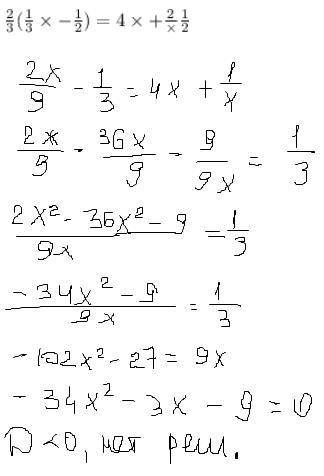 2/3(1/3 × −1/2) = 4 × +2/× 1/2
2x/9 - 1/3 = 4x + 1/x
2x/9 - 36x/9 - 9/9x = 1/3
2x² - 36x² - 9/9x = 1/3
-34x² - 9/9x = 1/3
-102x² - 27 = 9x
-34x² - 3x - 9 = 0
D<0, нет реш.